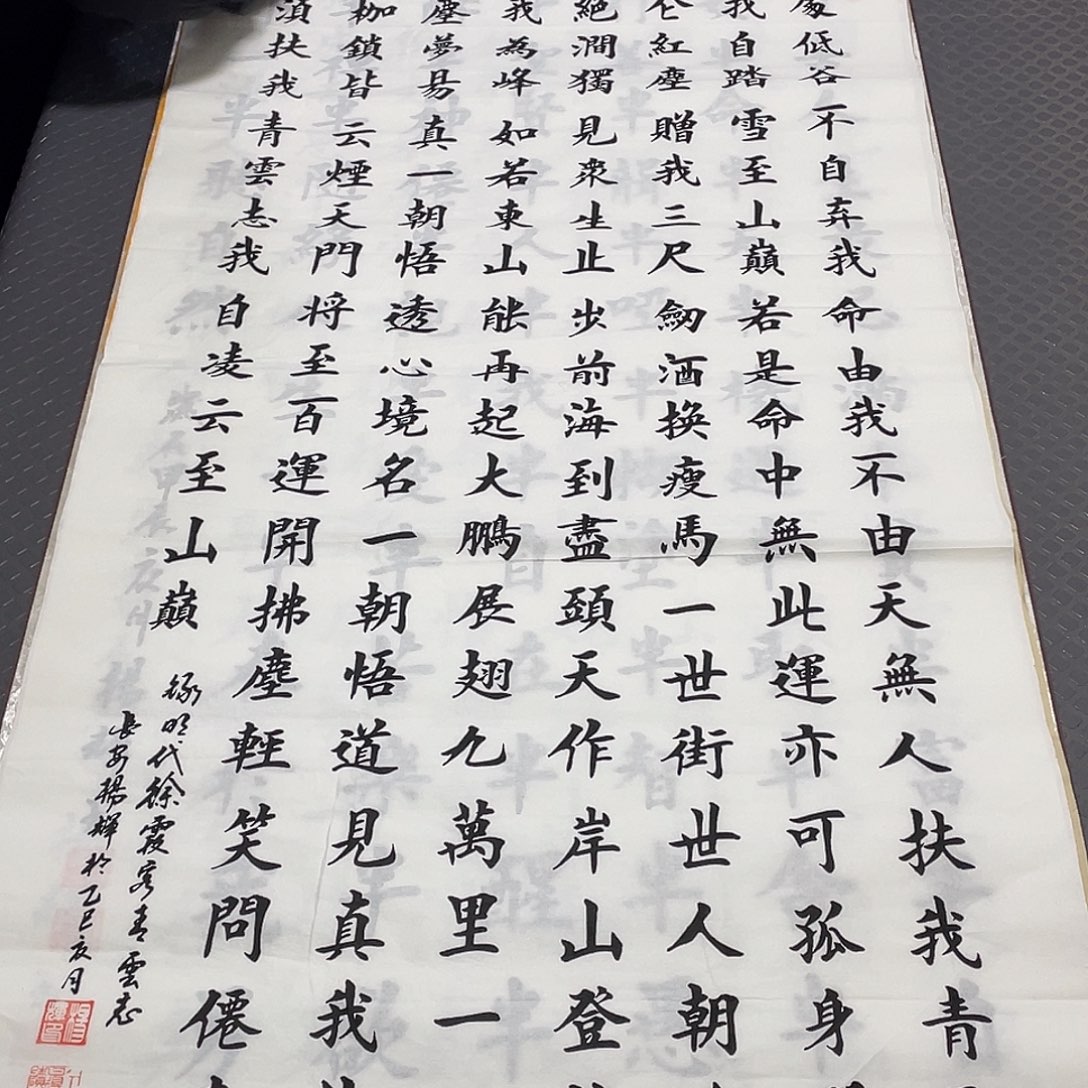 處低谷不自弃我命由我不由天無人扶我青
我自踏雪至山巔若是命中無此運亦可孤身
仑紅塵贈我三尺劒酒換瘦馬一世街世人朝
絕澗獨見衆生止步前海到盡頭天作岸山登
我為峰如若東山能再起大鵬展翅九萬里一
塵夢易真一朝悟透心境名一朝悟道見真我
枷鎖皆云煙天門将至百運開拂塵輕笑問僊
湏扶我青雲志我自凌云至山巔
録明代徐霞客青雲志
長安楊輝於乙巳亥月